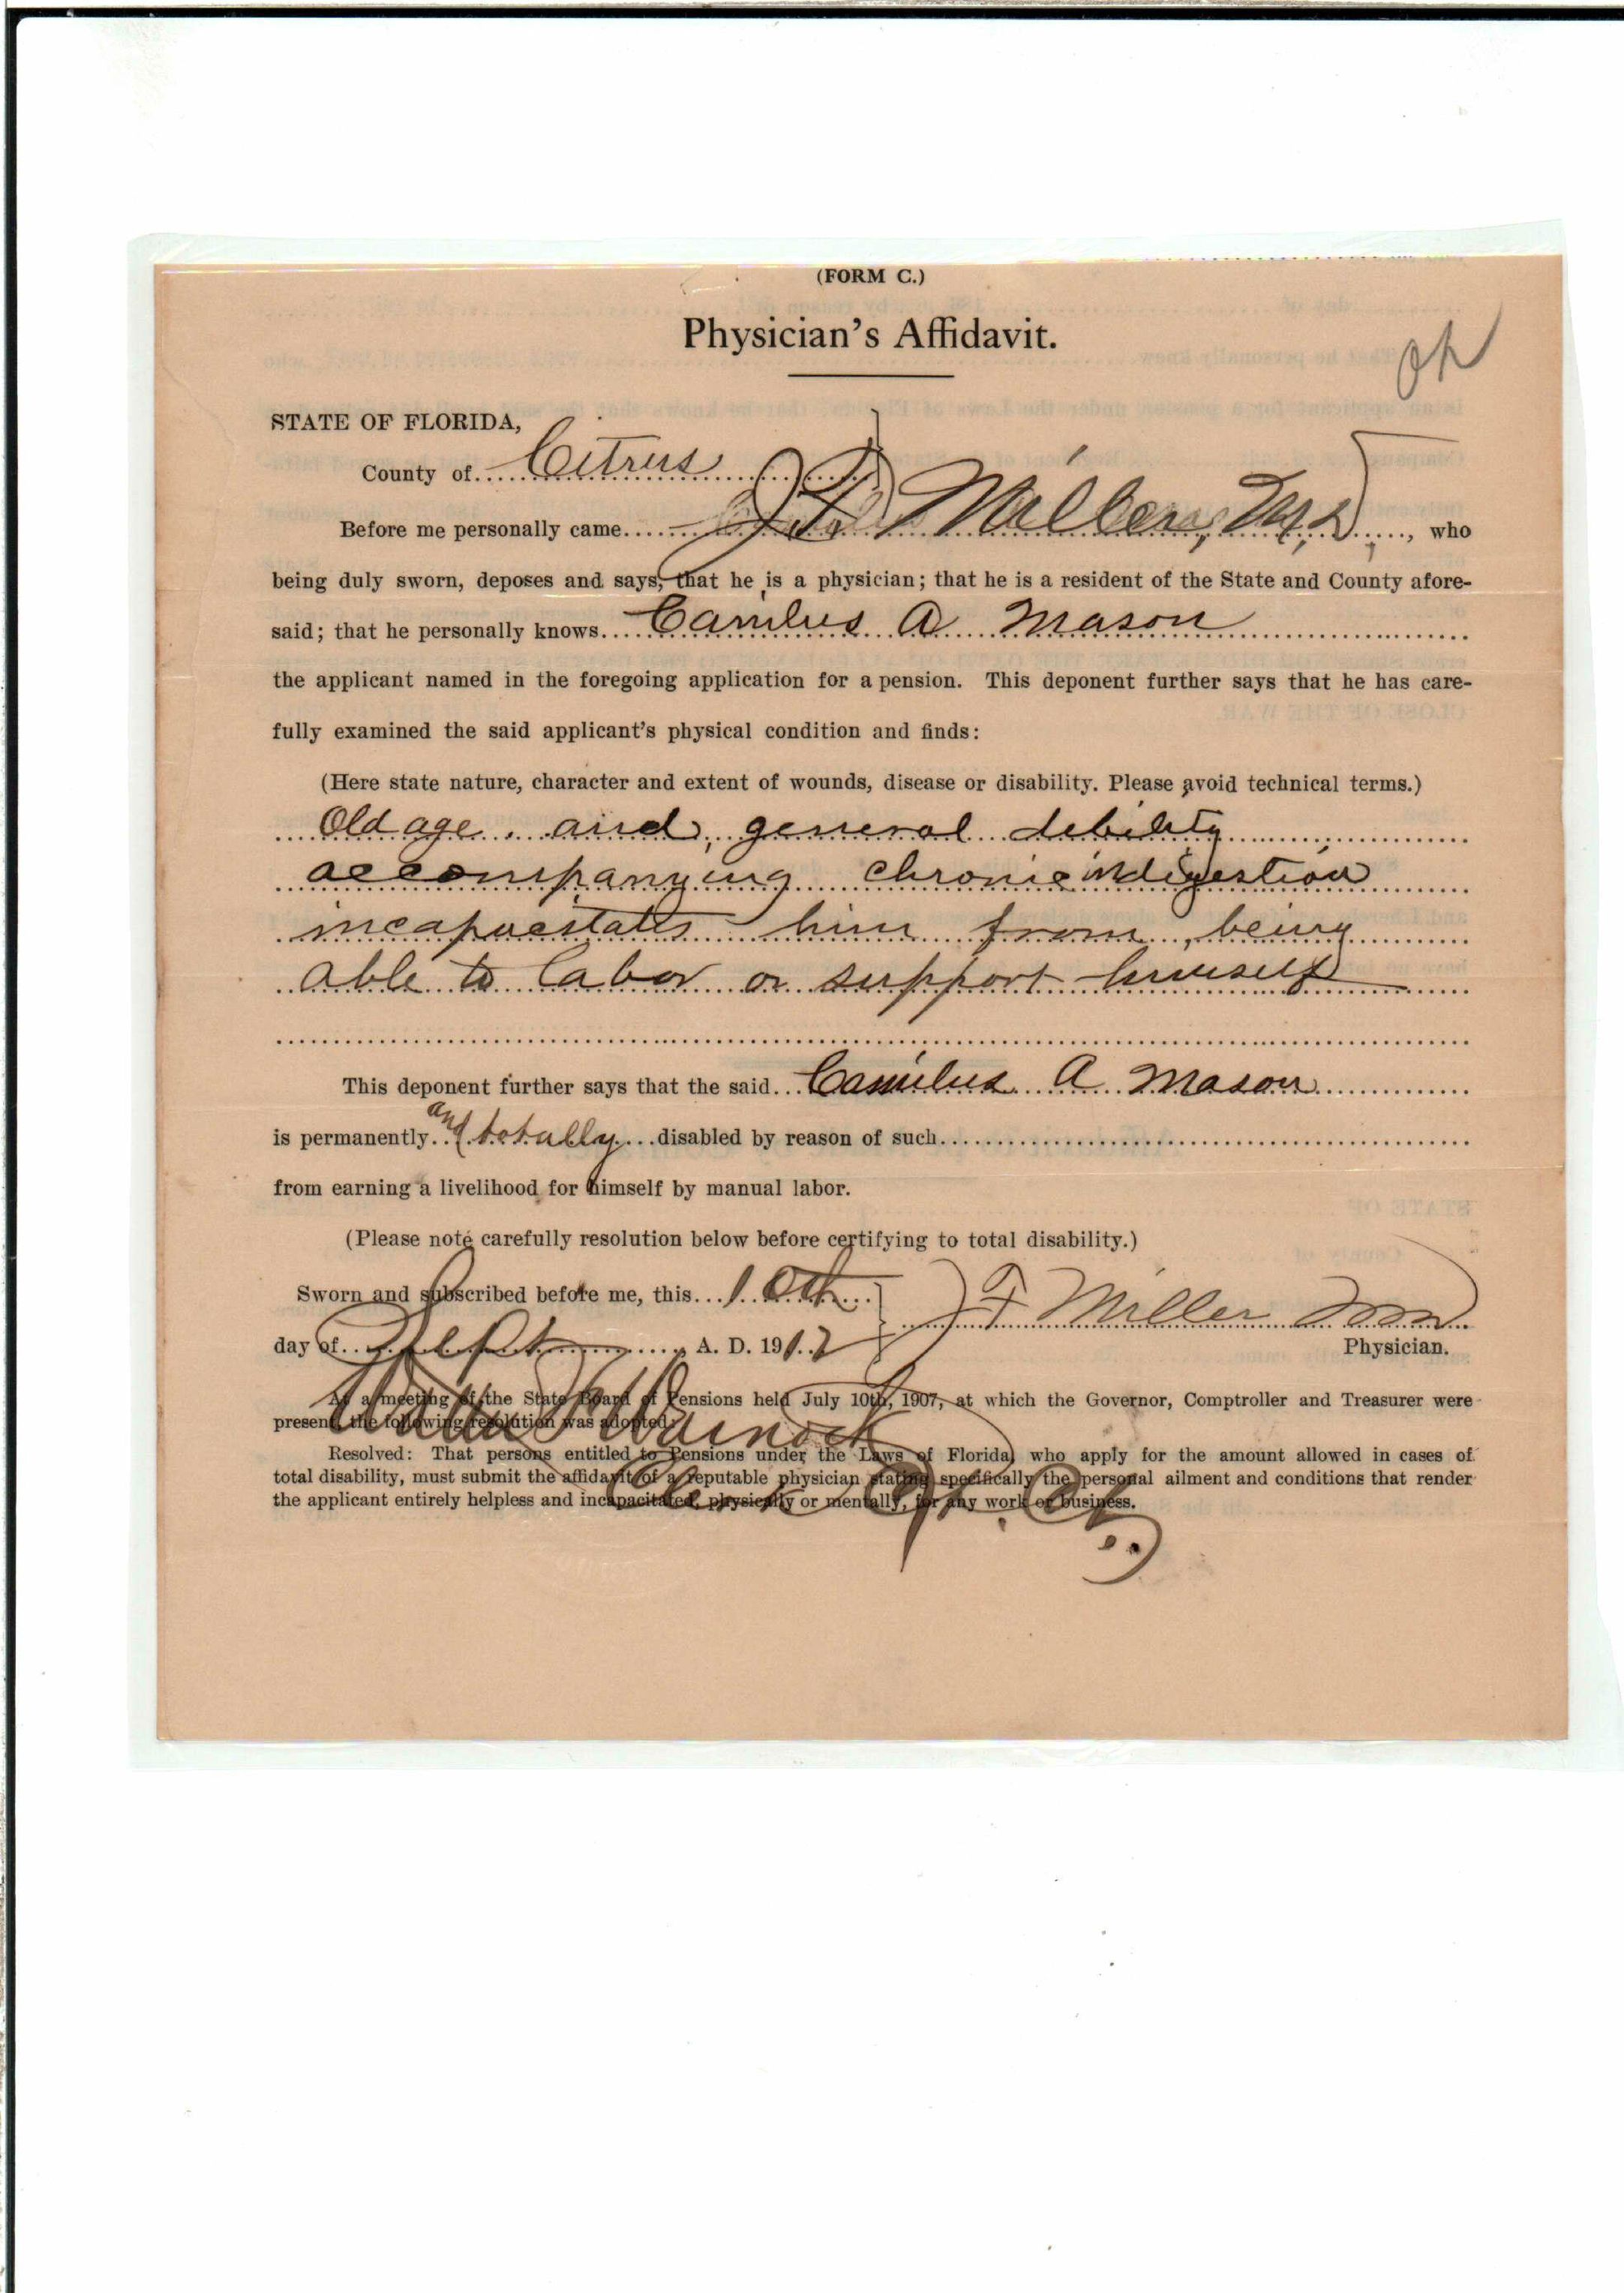 (FORM C.)
Physician's Affidavit.
ok
STATE OF FLORIDA,
County of Citrus
Before me personally came J. F. Miller, M, D, who
being duly sworn, deposes and says, that he is a physician; that he is a resident of the State and County afore-
said; that he personally knows Camilus A Mason
the applicant named in the foregoing application for a pension. This deponent further says that he has care-
fully examined the said applicant's physical condition and finds:
(Here state nature, character and extent of wounds, disease or disability. Please avoid technical terms.)
Old age and general debility
accompanying chronic indigestion
incapacitates him from being
able to labor or support himself
This deponent further says that the said Camilus A Mason
is permanently and totally disabled by reason of such
from earning a livelihood for himself by manual labor.
(Please note carefully resolution below before certifying to total disability.)
Sworn and subscribed before me, this 10th
J F Miller MD
day of Sept A. D. 1912
Physician.
At a meeting of the State Board of Pensions held July 10th, 1907, at which the Governor, Comptroller and Treasurer were
present, the following resolution was adopted:
Walter Warnock
Resolved: That persons entitled to Pensions under the Laws of Florida, who apply for the amount allowed in cases of
total disability, must submit the affidavit of a reputable physician stating specifically the personal ailment and conditions that render
the applicant entirely helpless and incapacitated, physically or mentally, for any work or business.
Clerk Ct. Ct.